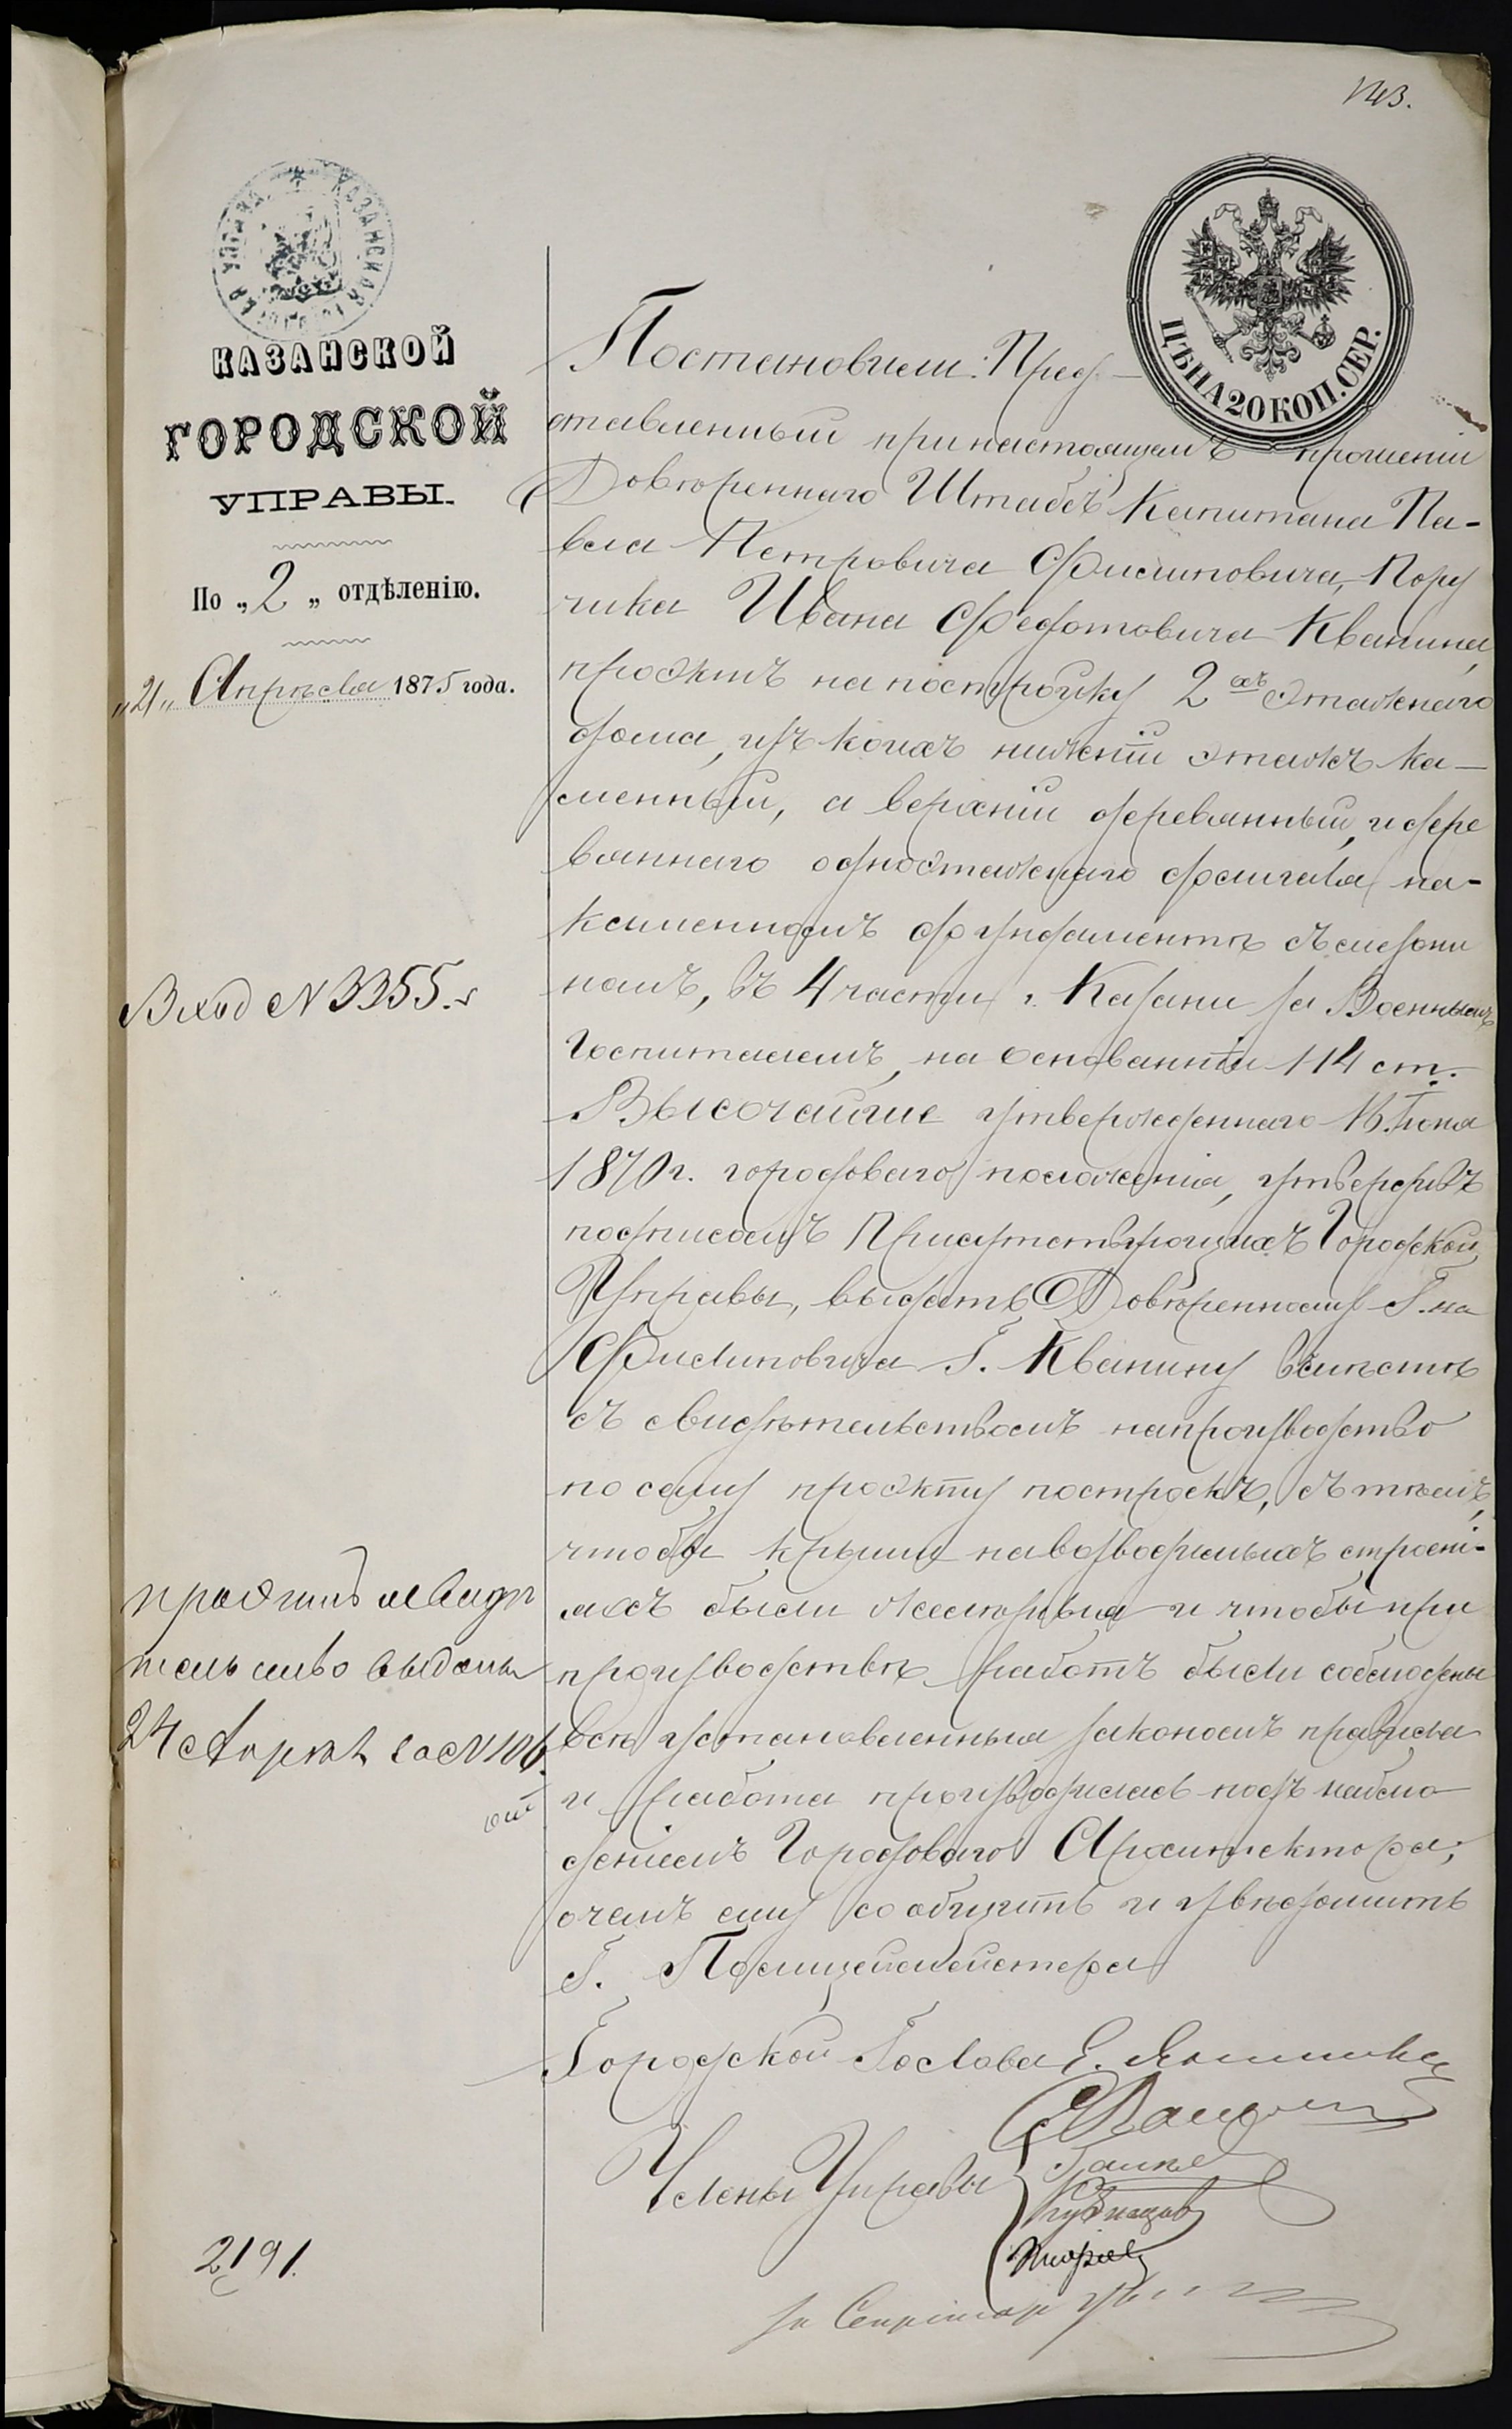 143.
КАЗАНСКАЯ ГОРОДСКАЯ УПРАВА
ЦѢНА 20 КОП. СЕР.
КАЗАНСКОЙ
ГОРОДСКОЙ
УПРАВЫ.
По „2„ отдѣленію.
„21„ Апрѣля 1875 года.
Вход N 3355.
проэктъ и свидѣ
тельство выданы
24 Апрѣля за N 106.
2191.
Постановили: Пред-
ставленный при настоящемъ прошеніи
Довѣреннаго Штабсъ Капитана Па-
вла Петровича Филиповича, Пору
чика Ивана Федотовича Кванина,
проэктъ на постройку 2хъ этажнаго
дома, изъ коихъ нижній этажъ ка-
менный, а верхній деревянный, и дере
вяннаго одноэтажнаго флигеля на
каменномъ фундаментѣ съ мезони
номъ, въ 4 части г. Казани за Военнымъ
госпиталемъ, на основаніи 114 ст.
Высочайше утвержденнаго 16 Іюня
1870 г. городоваго положенія, утвердивъ
подписомъ Присутствующихъ Городской
Управы, выдать Довѣренному Г-на
Филиповича Г. Кванину вмѣстѣ
съ свидѣтельствомъ на производство
по сему проэкту построекъ, съ тѣмъ,
чтобы крыши на возводимыхъ строені-
яхъ были желѣзныя и чтобы при
производствѣ работъ были соблюдены
всѣ установленныя закономъ правила
и работа производилась подъ наблю
деніемъ Городоваго Архитектора;
о чемъ ему сообщить и увѣдомить
Г. Полицеймейстера
Городской Голова Е.
Члены Управы
Кузнецов
за Секретаря